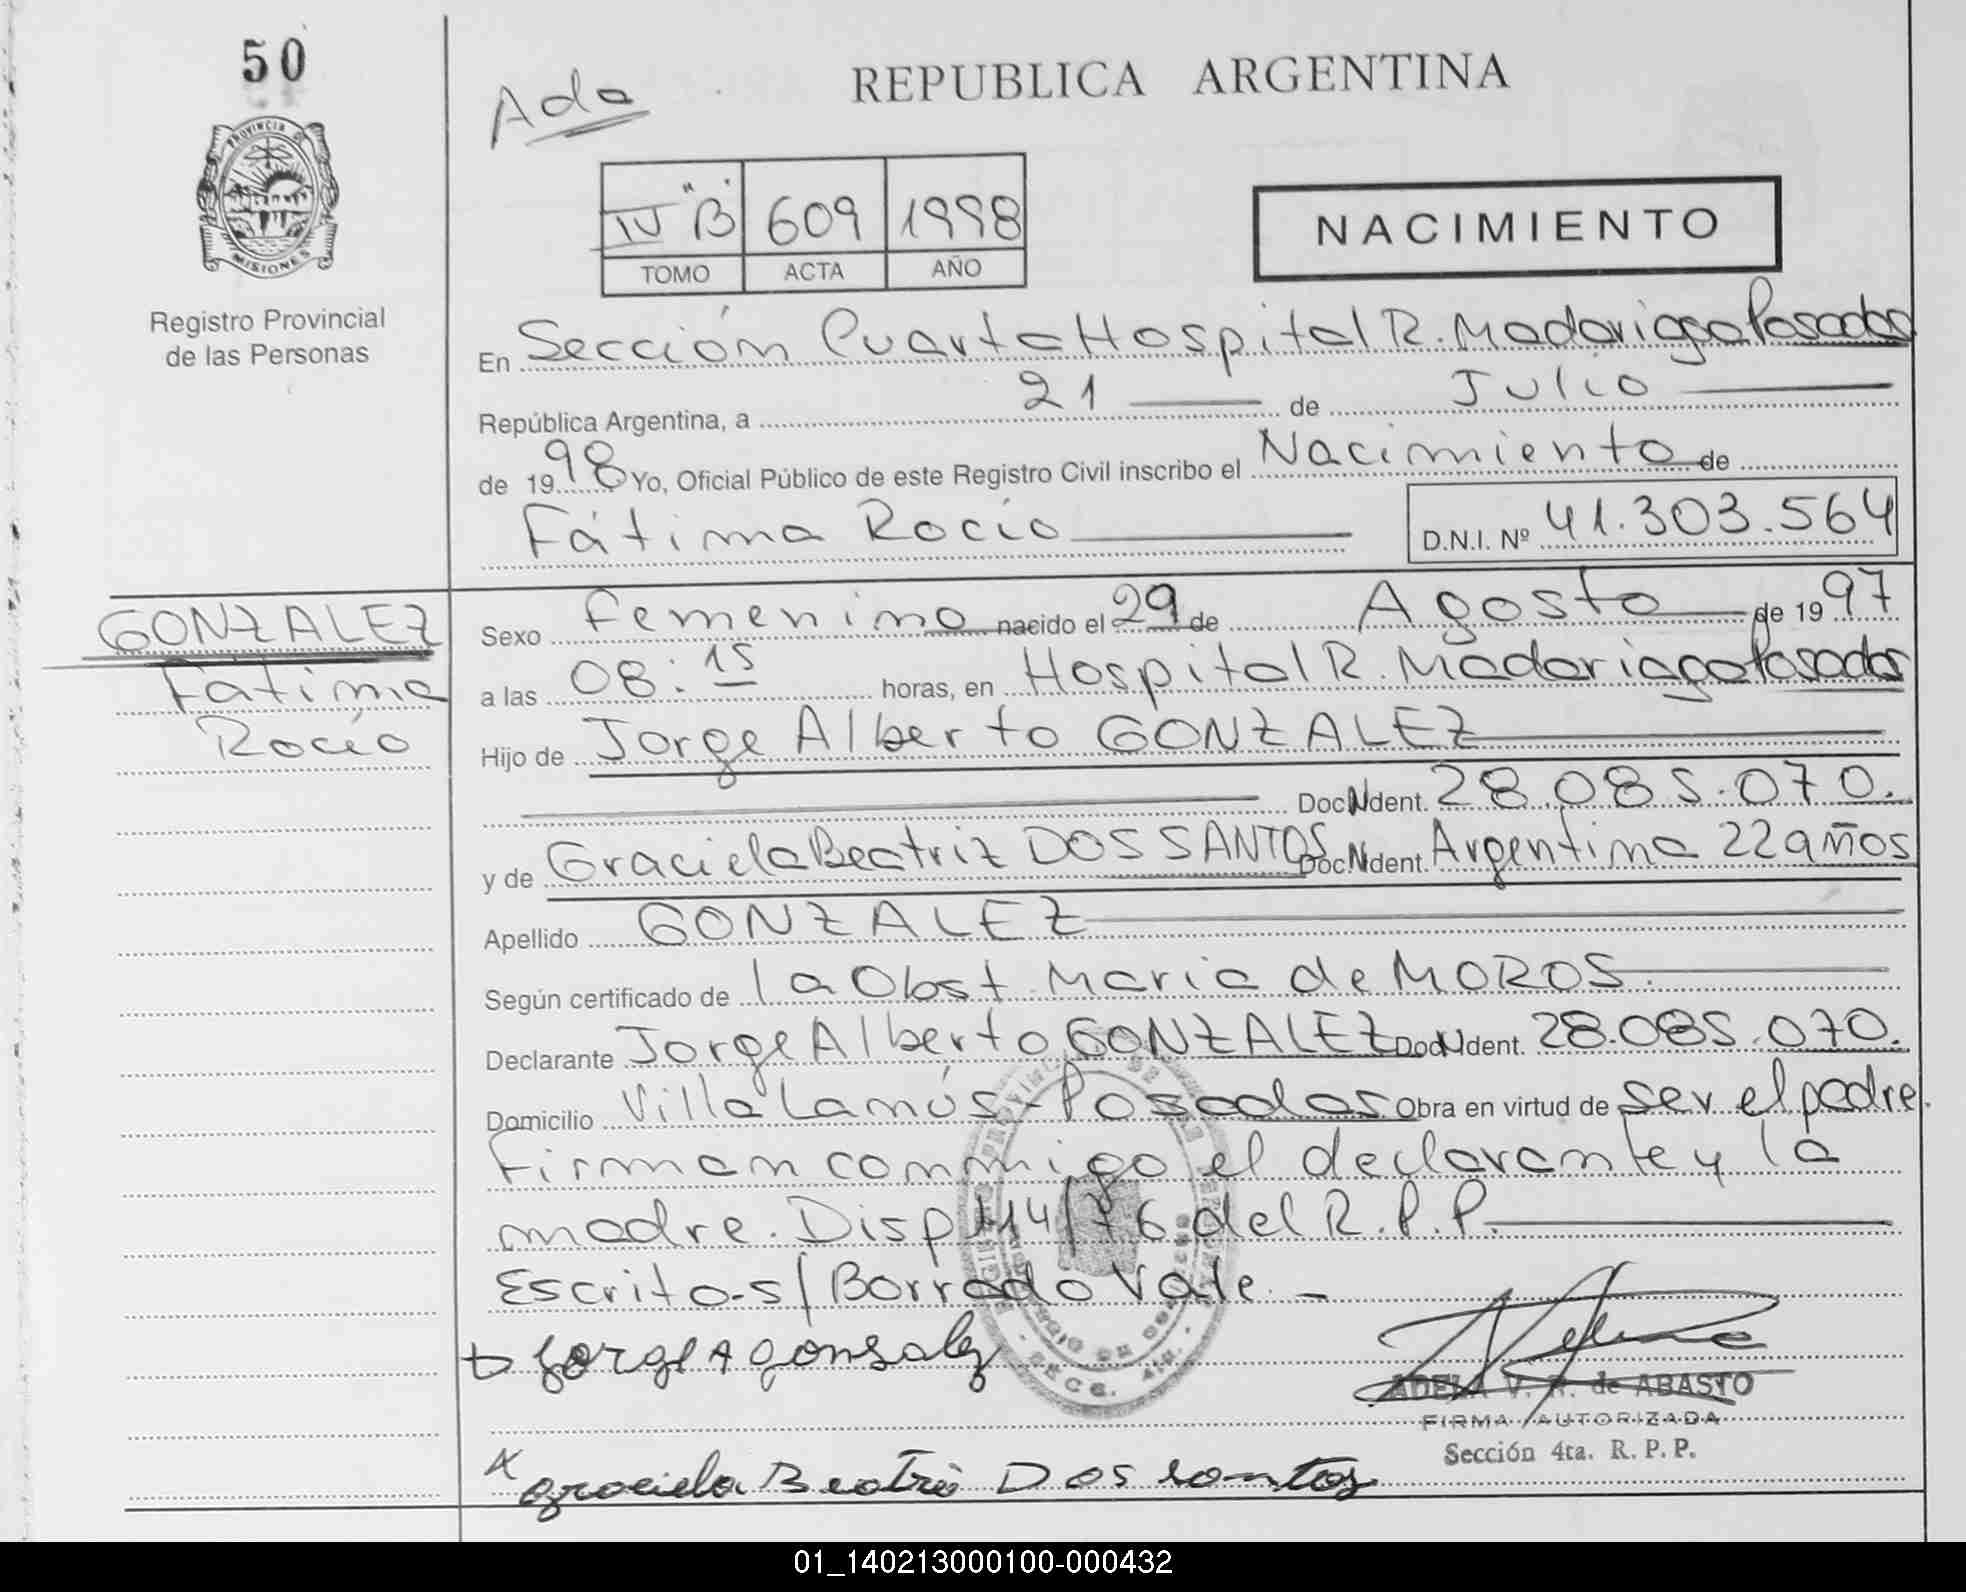 50
Ada
REPUBLICA ARGENTINA
PROVINCIA DE MISIONES
IV "B" 609 1998
TOMO ACTA AÑO
NACIMIENTO
Registro Provincial
de las Personas
En Sección Cuarta Hospital R. Madariaga Posadas
República Argentina, a 21 de Julio
de 1998 Yo, Oficial Público de este Registro Civil inscribo el Nacimiento de
Fátima Rocío
D.N.I. Nº 41.303.564
GONZALEZ
Fátima
Rocío
Sexo Femenino nacido el 29 de Agosto de 1997
a las 08:15 horas, en Hospital R. Madariaga Posadas
Hijo de Jorge Alberto GONZALEZ
Doc. N Ident. 28.085.070.
y de Graciela Beatriz DOS SANTOS Doc. N Ident. Argentina 22 años
Apellido GONZALEZ
Según certificado de la Obst. Maria de MOROS.
Declarante Jorge Alberto GONZALEZ Doc. N Ident. 28.085.070.
Domicilio Villa Lamús - Posadas Obra en virtud de ser el padre.
Firman conmigo el declarante y la
madre. Disp 114/76 del R.P.P.
Escrito s/ Borrado Vale. -
Jorge A gonsalez
ADELA V. R. de ABASTO
FIRMA AUTORIZADA
Sección 4ta. R. P. P.
x graciela Beatris Dos santos
01_140213000100-000432